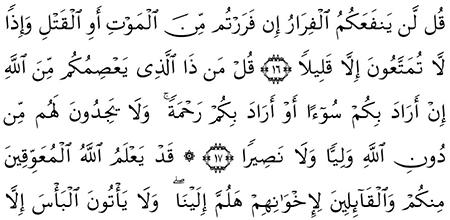 قُل لَّن يَنفَعَكُمُ ٱلْفِرَارُ إِن فَرَرْتُم مِّنَ ٱلْمَوْتِ أَوِ ٱلْقَتْلِ وَإِذًا
لَّا تُمَتَّعُونَ إِلَّا قَلِيلًا ﴿١٦﴾ قُلْ مَن ذَا ٱلَّذِى يَعْصِمُكُم مِّنَ ٱللَّهِ
إِنْ أَرَادَ بِكُمْ سُوٓءًا أَوْ أَرَادَ بِكُمْ رَحْمَةً ۚ وَلَا يَجِدُونَ لَهُم مِّن
دُونِ ٱللَّهِ وَلِيًّا وَلَا نَصِيرًا ﴿١٧﴾ ۞ قَدْ يَعْلَمُ ٱللَّهُ ٱلْمُعَوِّقِينَ
مِنكُمْ وَٱلْقَآئِلِينَ لِإِخْوَٰنِهِمْ هَلُمَّ إِلَيْنَا ۖ وَلَا يَأْتُونَ ٱلْبَأْسَ إِلَّا